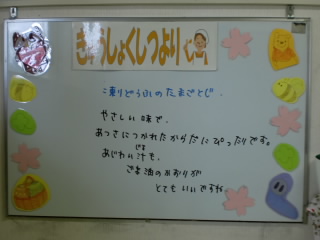 きゅうしょくしつより
凍りどうふのたまごとじ、
やさしい味で、
あつさにつかれたからだにぴったりです。
じる
あじわい汁も、
ごま油のかおりが
とてもいいですね。